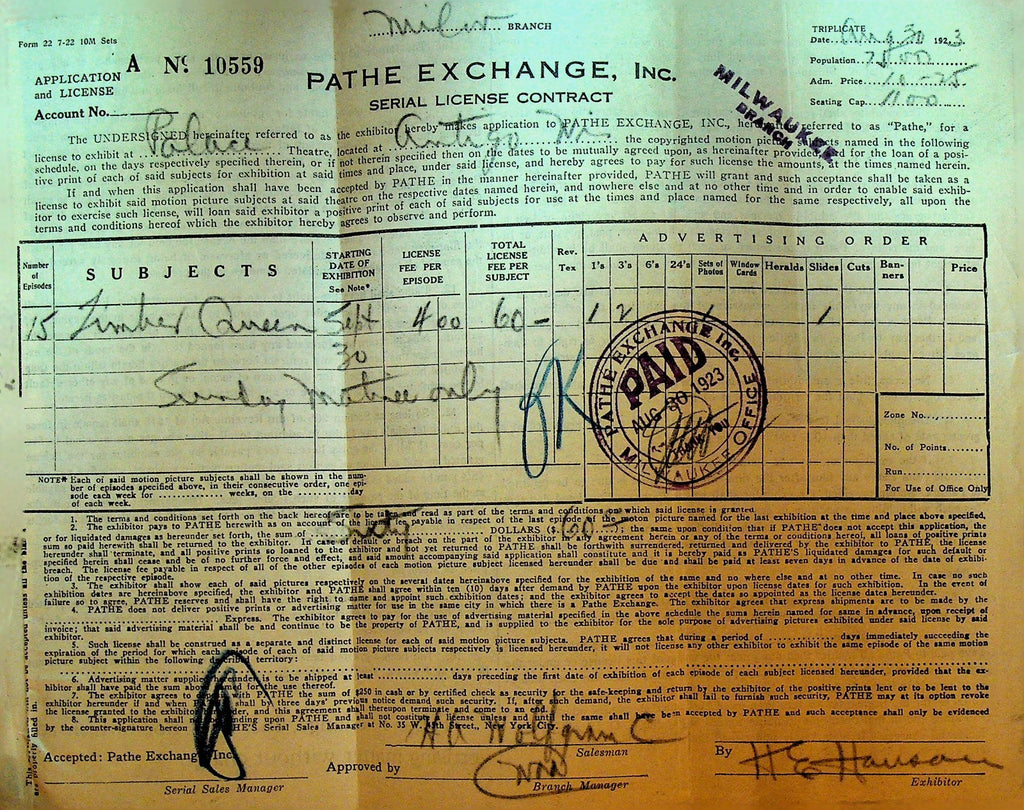 Form 22 7-22 10M Sets
Milw BRANCH
TRIPLICATE
Date Aug 30 1923
Population 7500
Adm. Price 10-25
Seating Cap. 1100
APPLICATION and LICENSE
A No. 10559
Account No.
PATHE EXCHANGE, Inc.
SERIAL LICENSE CONTRACT
MILWAUKEE
BRANCH
The UNDERSIGNED hereinafter referred to as the exhibitor hereby makes application to PATHE EXCHANGE, INC., hereinafter referred to as "Pathe," for a
license to exhibit at Palace Theatre, located at Antigo Wis. the copyrighted motion picture subjects named in the following
schedule, on the days respectively specified therein, or if not therein specified then on the dates to be mutually agreed upon, as hereinafter provided, and for the loan of a posi-
tive print of each of said subjects for exhibition at said times and place, under said license, and hereby agrees to pay for such license the amounts, at the times named herein.
If and when this application shall have been accepted by PATHE in the manner hereinafter provided, PATHE will grant and such acceptance shall be taken as a
license to exhibit said motion picture subjects at said theatre on the respective dates named herein, and nowhere else and at no other time and in order to enable said exhib-
itor to exercise such license, will loan said exhibitor a positive print of each of said subjects for use at the times and place named for the same respectively, all upon the
terms and conditions hereof which the exhibitor hereby agrees to observe and perform.
Number of Episodes
SUBJECTS
STARTING DATE OF EXHIBITION See Note*
LICENSE FEE PER EPISODE
TOTAL LICENSE FEE PER SUBJECT
Rev. Tex
ADVERTISING ORDER
1's 3's 6's 24's Sets of Photos Window Cards Heralds Slides Cuts Ban-ners Price
15 Timber Queen Sept 30 4 00 60- 1 2 1 1
Sunday Matinee only
OK
PATHE EXCHANGE Inc.
PAID
AUG 30 1923
Thank You
MILWAUKEE OFFICE
Zone No.
No. of Points
Run
For Use of Office Only
NOTE* Each of said motion picture subjects shall be shown in the num-
ber of episodes specified above, in their consecutive order, one epi-
sode each week for weeks, on the day
of each week.
1. The terms and conditions set forth on the back hereof are to be taken and read as part of the terms and conditions on which said license is granted.
2. The exhibitor pays to PATHE herewith as on account of the license fee payable in respect of the last episode of the motion picture named for the last exhibition at the time and place above specified,
or for liquidated damages as hereunder set forth, the sum of Sixty DOLLARS ($ 60 00 ) upon the same upon condition that if PATHE does not accept this application, the
sum so paid herewith shall be returned to the exhibitor. In case of breach on the part of the exhibitor of any agreement herein or any of the terms or conditions hereof, all loans of positive prints
hereunder shall terminate, and all positive prints so loaned to the exhibitor and not yet returned to PATHE shall be forthwith surrendered, returned and delivered by the exhibitor to PATHE, the license
specified herein shall cease and be of no further force and effect, and said amount accompanying said application shall constitute and it is hereby paid as PATHE'S liquidated damages for such default or
breach. The license fee payable in respect of all of the other episodes of each motion picture subject licensed hereunder shall be due and shall be paid at least seven days in advance of the date of exhibi-
tion of the respective episode.
3. The exhibitor shall show each of said pictures respectively on the several dates hereinabove specified for the exhibition of the same and no where else and at no other time. In case no such
exhibition dates are hereinabove specified, the exhibitor and PATHE shall agree within ten (10) days after demand by PATHE upon the exhibitor upon license dates for such exhibition. In the event of
failure so to agree, PATHE reserves and shall have the right to name and appoint such exhibition dates; and the exhibitor agrees to accept the dates so appointed as the license dates hereunder.
4. PATHE does not deliver positive prints or advertising matter for use in the same city in which there is a Pathe Exchange. The exhibitor agrees that express shipments are to be made by the
Express. The exhibitor agrees to pay for the use of advertising material specified in the above schedule the sums herein named for same in advance, upon receipt of
invoice; that said advertising material shall be and continue to be the property of PATHE, and is supplied to the exhibitor for the sole purpose of advertising pictures exhibited under said license by said
exhibitor.
5. Such license shall be construed as a separate and distinct license for each of said motion picture subjects. PATHE agrees that during a period of days immediately succeeding the
expiration of the period for which each episode of each of said motion picture subjects respectively is licensed hereunder, it will not license any other exhibitor to exhibit the same episode of the same motion
picture subject within the following described territory:
6. Advertising matter supplied hereunder is to be shipped at least days preceding the first date of exhibition of each episode of each subject licensed hereunder, provided that the ex-
hibitor shall have paid the sum above for the use thereof.
7. The exhibitor agrees to PATHE the sum of $250 in cash or by certified check as security for the safe-keeping and return by the exhibitor of the positive prints lent or to be lent to the
exhibitor hereunder if and when PATHE shall by three days' previous notice demand such security. If, after such demand, the exhibitor shall fail to furnish such security, PATHE may at its option revoke
the license granted to the exhibitor, and this agreement shall thereupon terminate and come to an end.
8. This application shall be binding upon PATHE and shall not constitute a license unless and until the same shall have been accepted by PATHE and such acceptance shall only be evidenced
by the counter-signature hereon of PATHE'S Serial Sales Manager at No. 35 W. 45th Street, New York City.
Accepted: Pathe Exchange Inc.
Serial Sales Manager
H A Wolfgram C
Salesman
Approved by
Branch Manager
By H E Hanson
Exhibitor